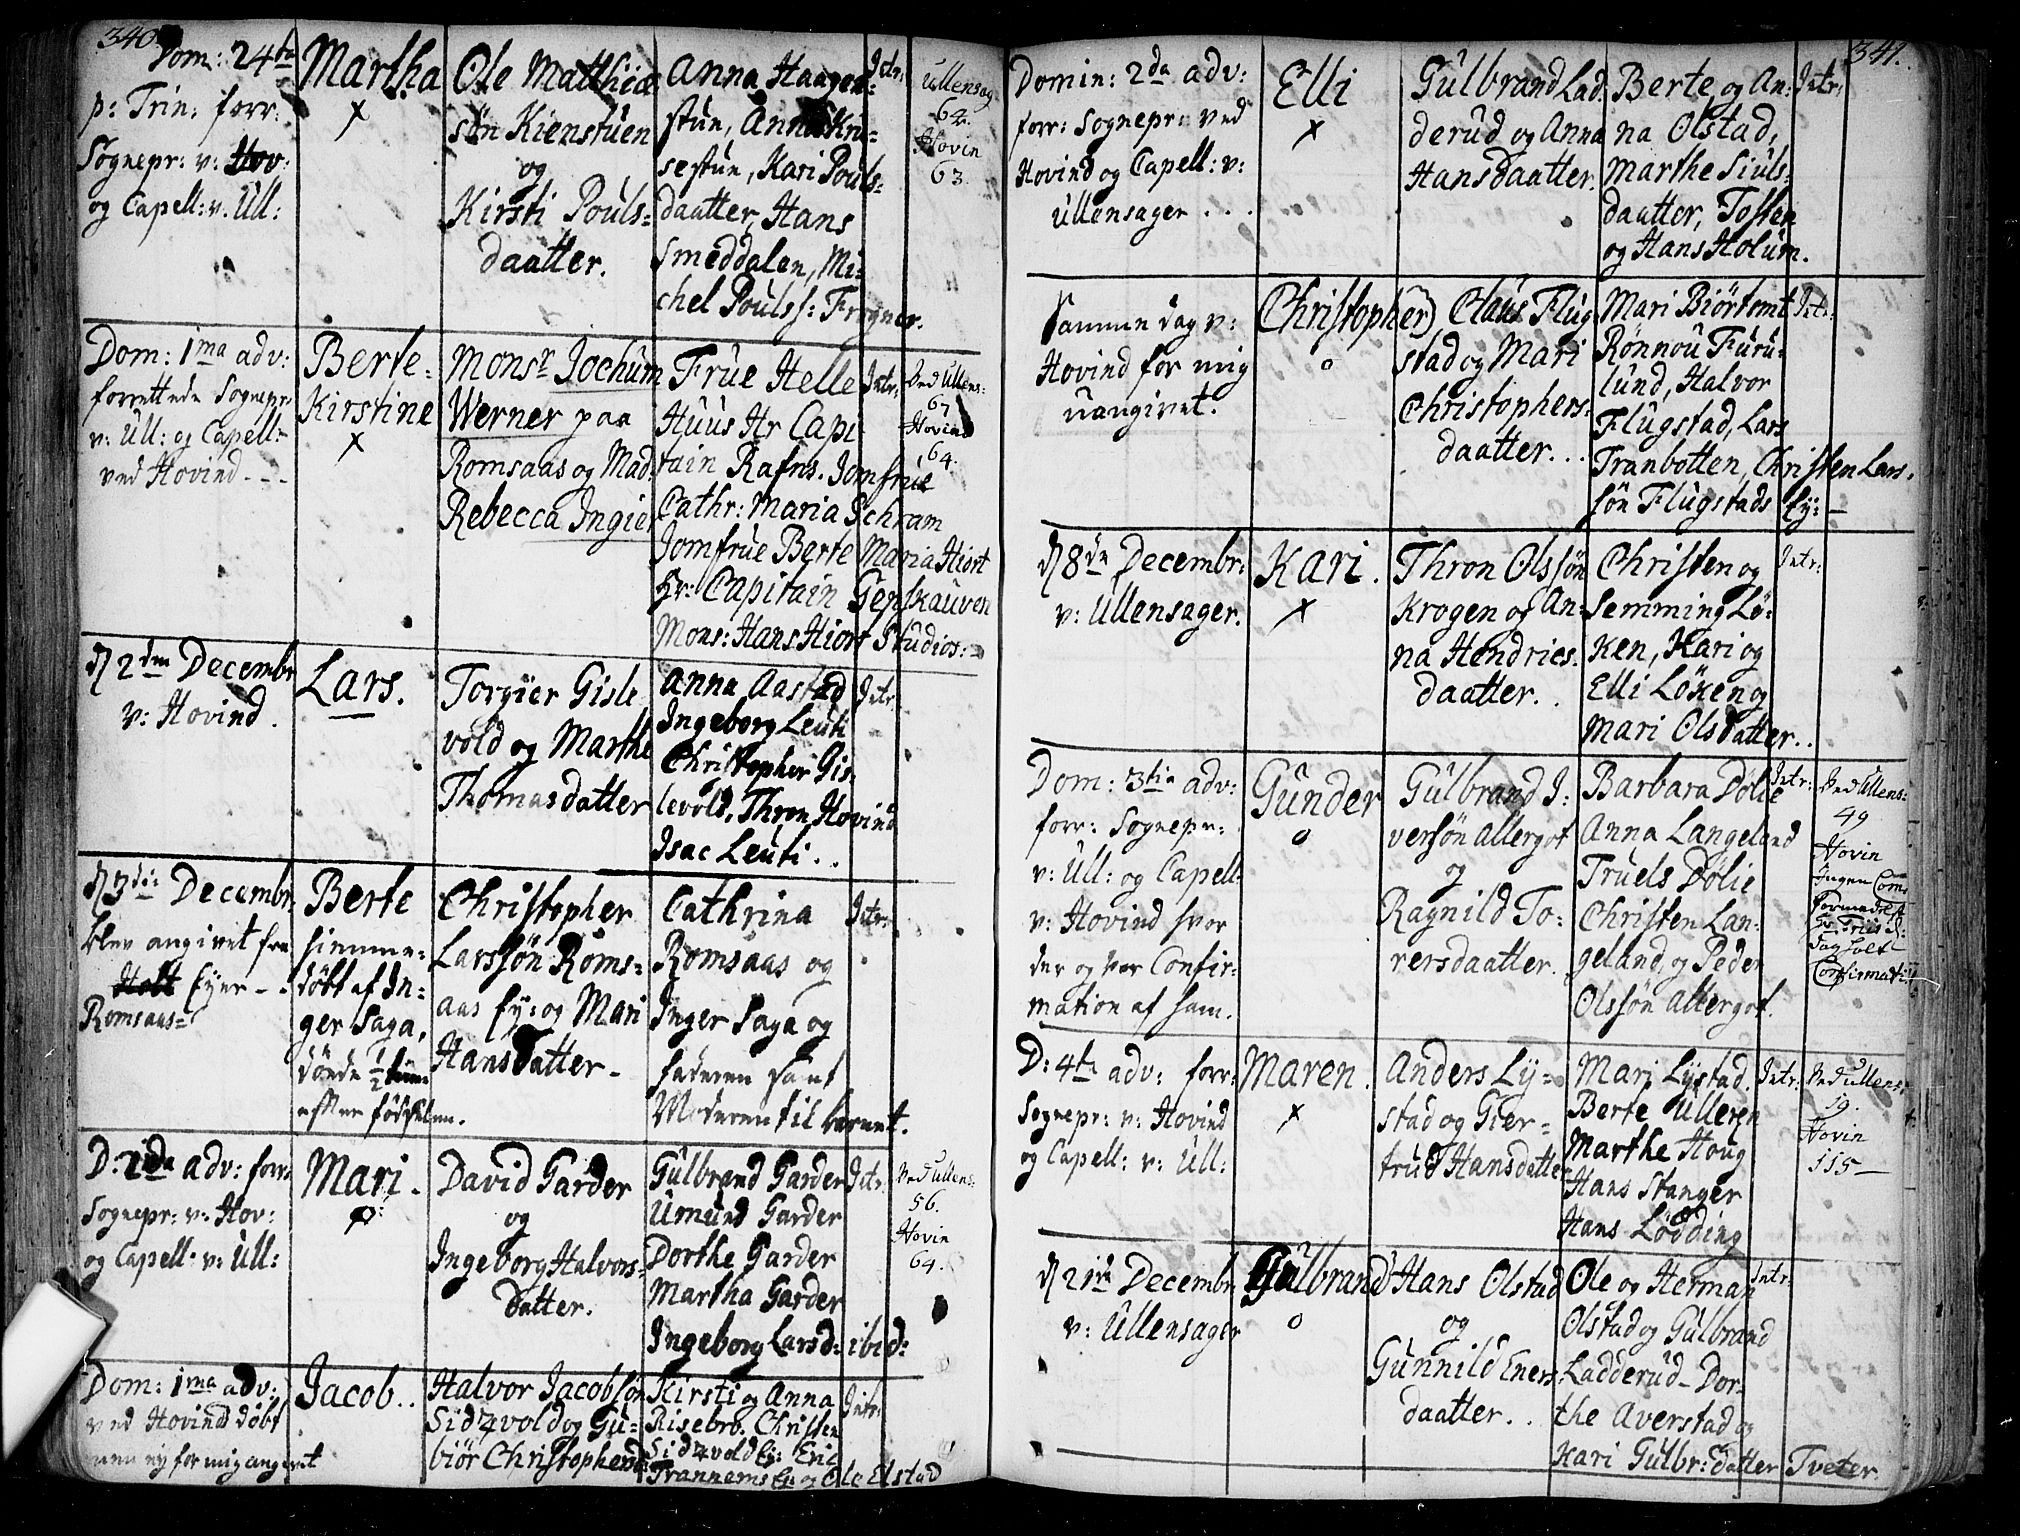 340.
Dom: 24te
p: Trin: forr:
Sognepr: v: Hov:
og Capell: v. Ull:
Martha
x
Ole Matthiæ
søn Kienstuen
og
Kirsti Pouls=
daatter.
Anna Haagen=
stun, Anna Kru=
sestun, Kari Pouls=
daatter, Hans
Smeddalen, Mi=
chel Poulss: Frogner.
Intr:
Ullensag
64.
Hovin
63.
Dom: 1ma adv:
forrettede Sognepr:
v: Ull: og Capell:
ved Hovind - - -
Berte=
Kirstine
x
Monsr Jochum
Werner paa
Romsaas og Mad:
Rebecca Ingier
Frue Helle
Huus Hr Capi
tain Rafns. Jomfrue
Cathr: Maria Schram
Jomfrue Berte Maria Hiort
Hr: Capitain
Mons: Hans Hiort Studios:
Intr:
Ved Ullens:
67
Hovind
64.
d 2den Decembr
v: Hovind.
Lars.
Torgier Gisle
vold og Marthe
Thomasdatter
Anna Aastad
Ingeborg Leuti
Christopher Gis=
levold, Thron Hovind
Isac Leuti..
Intr.
d 3die Decembr:
blev angivet fra
Holt Eyer - -
Romsaas=
Berte
hiemme=
døbt af In=
ger Saga,
døede 1/2 time
efter fødselen.
Christopher
Larssøn Roms=
aas Ey: og Mari
Hansdatter -
Cathrina
Romsaas og
Inger Saga og
faderen samt
Moderen til barnet.
Intr:
D: 2da adv: forr:
Sognepr: v: Hov:
og Capell: v: Ull:
Mari.
David Garder
og
Ingeborg Halvors=
datter.
Gulbrand Garder
Umund Garder
Dorthe Garder
Martha Garder
Ingeborg Larsd: ibid:
Intr.
Ved Ullens:
56.
Hovin
64.
Dom: 1ma adv:
ved Hovind døbt
men ey for mig angivet
Jacob..
Halvor Jacobsøn
Sidzvold og Gu=
biør Christophersd:
Kirsti og Anna
Risebro. Christen
Sidzvold Ey: Eric
Trannems Ey: og Ole Elstad
Intr:
341.
Domin: 2da adv:
forr: Sognepr: ved
Hovind og Capell: v:
Ullensager . . .
Elli
x
Gulbrand Lad=
derud og Anna
Hansdaatter.
Berte og An=
na Olstad,
Marthe Siuls=
daatter, Tosten
og Hans Holum.
Intr:
Samme dag v:
Hovind for mig
uangivet.
Christopher
o
Claus Flug
stad og Mari
Christophers=
daatter...
Mari Biørtomt
Rønnou Furu=
lund, Halvor
Flugstad, Lars
Tranbotten, Christen Lars.
søn Flugstads Ey: -
Intr:
d 8de Decembr:
v: Ullensager.
Kari.
x
Thron Olssøn
Krogen og An=
na Hendrics.
daatter..
Christen og
Semming Lø=
ken, Kari og
Elli Løken og
Mari Olsdatter..
Intr:
Dom: 3tia adv:
forr: Sognepr:
v: Ull: og Capell:
v: Hovind hvor
der og var Confir=
mation af ham.
Gunder
o
Gulbrand I=
versøn Allergot
og
Ragnild To=
rersdaatter.
Barbara Dølie
Anna Langeland
Truels Dølie
Christen Lan=
geland, og Peder
Olssøn Allergot.
Intr:
Ved Ullens:
49
Hovin
Ingen Com=
D: 4te adv: forr:
Sognepr: v: Hovind
og Capell: v: Ull:
Maren.
x
Anders Ly=
stad og Gier=
trud Hansdatter
Mari Lystad.
Berte Ulleren
Marthe Houg
Hans Stanger
Hans Lødding
Intr:
Ved Ullens:
19.
Hovin
115 -
d 21de Decembr
v: Ullensager
Gulbrand
o
Hans Olstad
og
Gunnild Eners=
daatter..
Ole og Herman
Olstad og Gulbrand
Ladderud - Dor=
the Averstad og
Kari Gulbr: datter Tveter.
Intr: